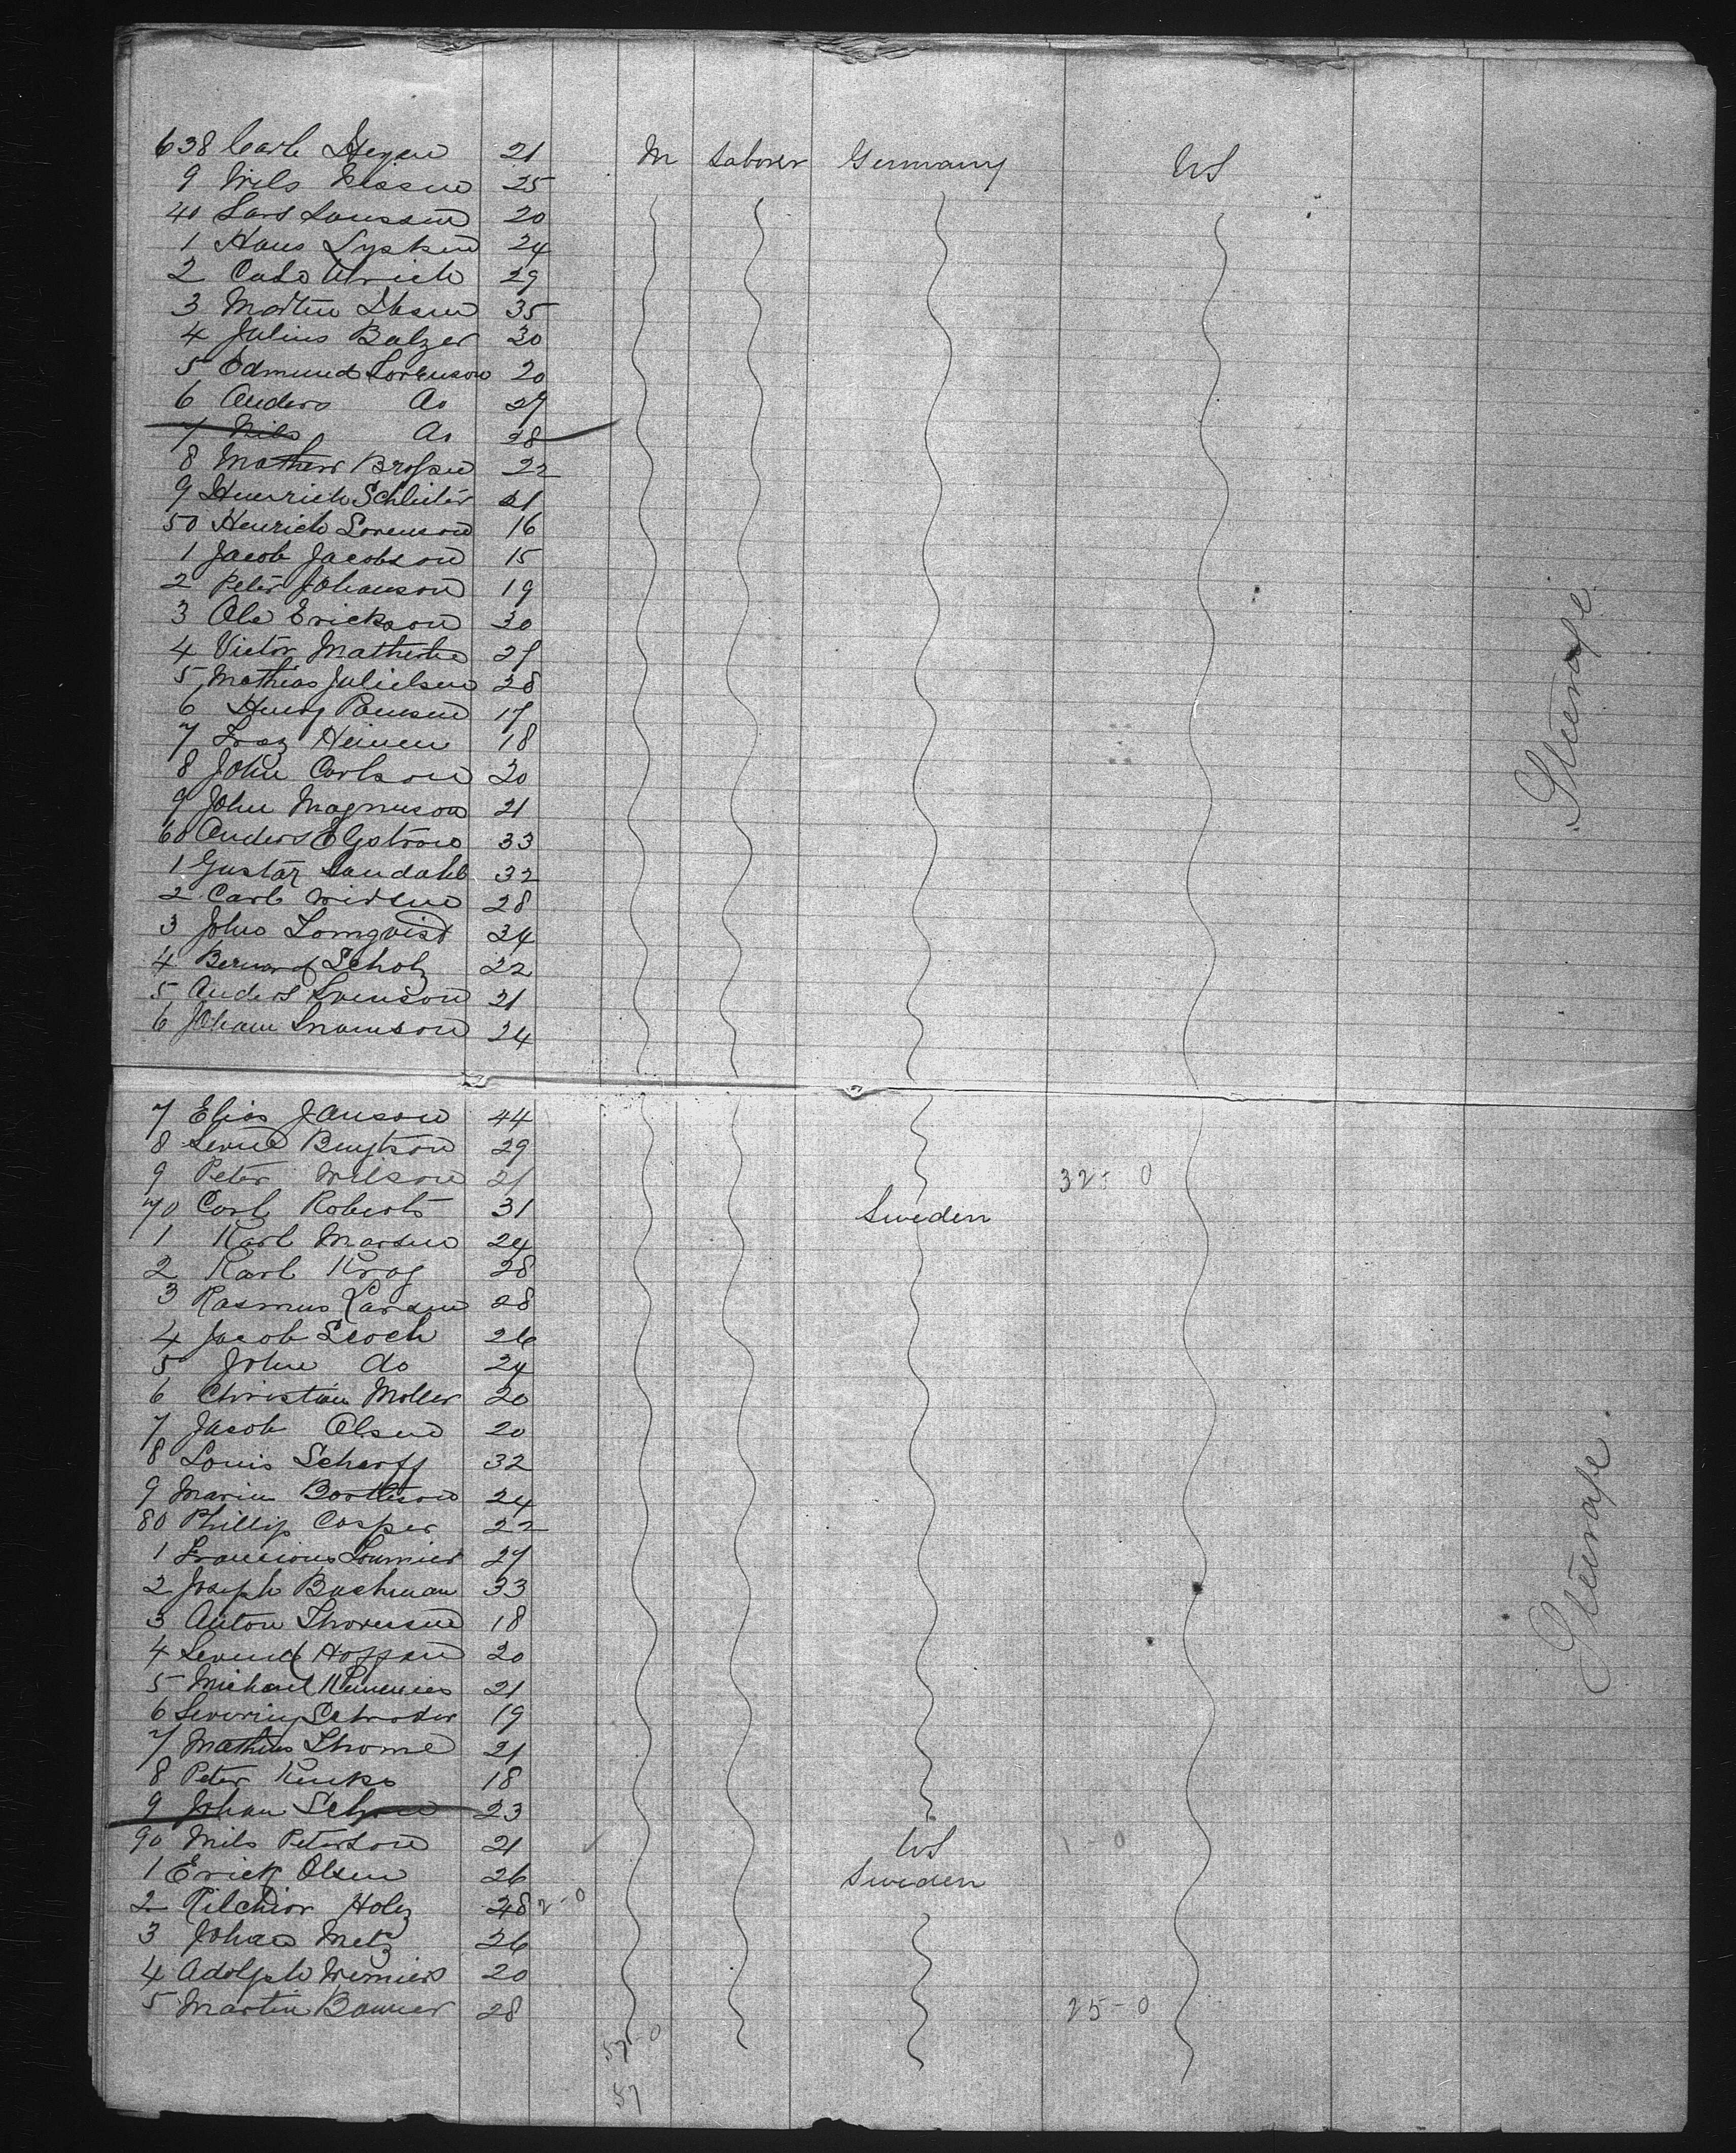 638 Carl Heyen 21 M Laborer Germany US
9 Nils Nissen 25
40 Lars Laussen 20
1 Hans Lysken 24
2 Ulrich 29
3 Martin Ibsen 35
4 Julius Balzer 30
5 Edmund Sorenson 20
6 Anders do 27
7 Nils do 28
8 Mathew 22
9 Heinrich Schluter 21
50 Henrich Sorenson 16
1 Jacob Jacobson 15
2 Peter Johanson 19
3 Ole Erickson 30
4 Victor 27
5 Mathias Julielsen 28
6 Henry Pausen 17
7 Heinen 18
8 John Carlson 20
9 John Magnuson 21
60 Anders Elgstrom 33
1 Gustaf Sandahl 32
2 Carl 28
3 John Lomqvist 34
4 Scholz 22
5 Anders Svenson 21
6 Johan 24
Steerage
7 Elias Janson 44
8 29
9 Peter Nelson 21 325-0
70 Carl Roberts 31 Sweden
1 Karl Marsen 24
2 Karl Krog 28
3 Rasmus Larsen 28
4 Jacob 26
5 John do 24
6 Christian Moller 20
7 Jacob Olsen 20
8 Louis Scharff 32
9 Marius 24
80 Phillip Casper 22
1 27
2 Joseph Bachman 33
3 Anton Thoresen 18
4 20
5 Michael 21
6 Severin Schroder 19
7 Mathias Thome 21
8 Peter 18
9 Johan 23
90 Nils Peterson 21 US 1-0
1 Erick Olsen 26 Sweden
2 Holz 28 2-0
3 Johan Metz 26
4 Adolph 20
5 Martin Banner 28 25-0
57-0
57
Steerage